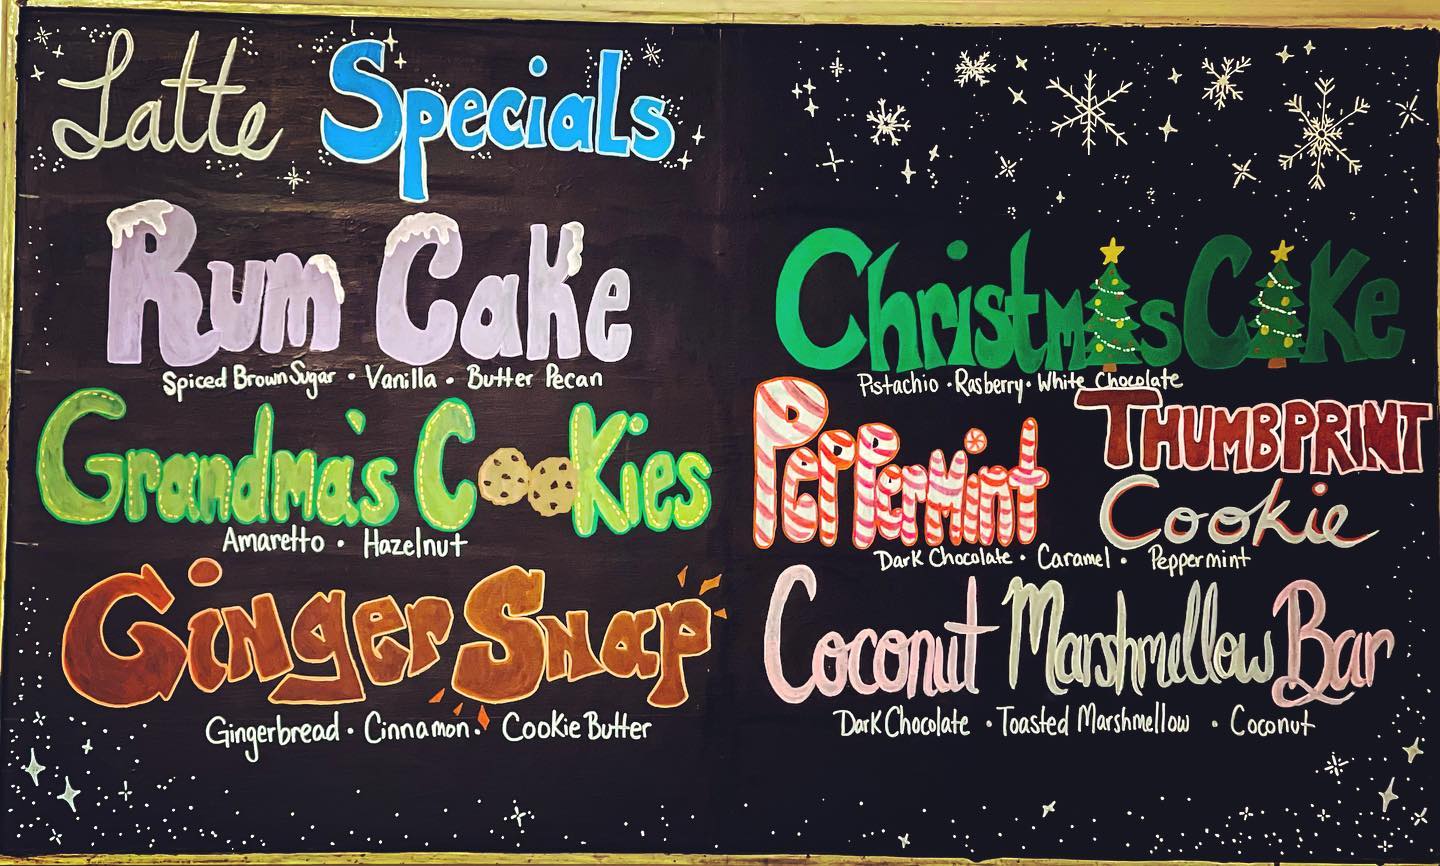 Latte Specials
Rum Cake
Spiced Brown Sugar • Vanilla • Butter Pecan
Grandma's Cookies
Amaretto • Hazelnut
Ginger Snap
Gingerbread • Cinnamon • Cookie Butter
Christmas Cake
Pistachio • Rasberry • White Chocolate
Peppermint Thumbprint
Cookie
Dark Chocolate • Caramel • Peppermint
Coconut Marshmellow Bar
Dark Chocolate • Toasted Marshmellow • Coconut